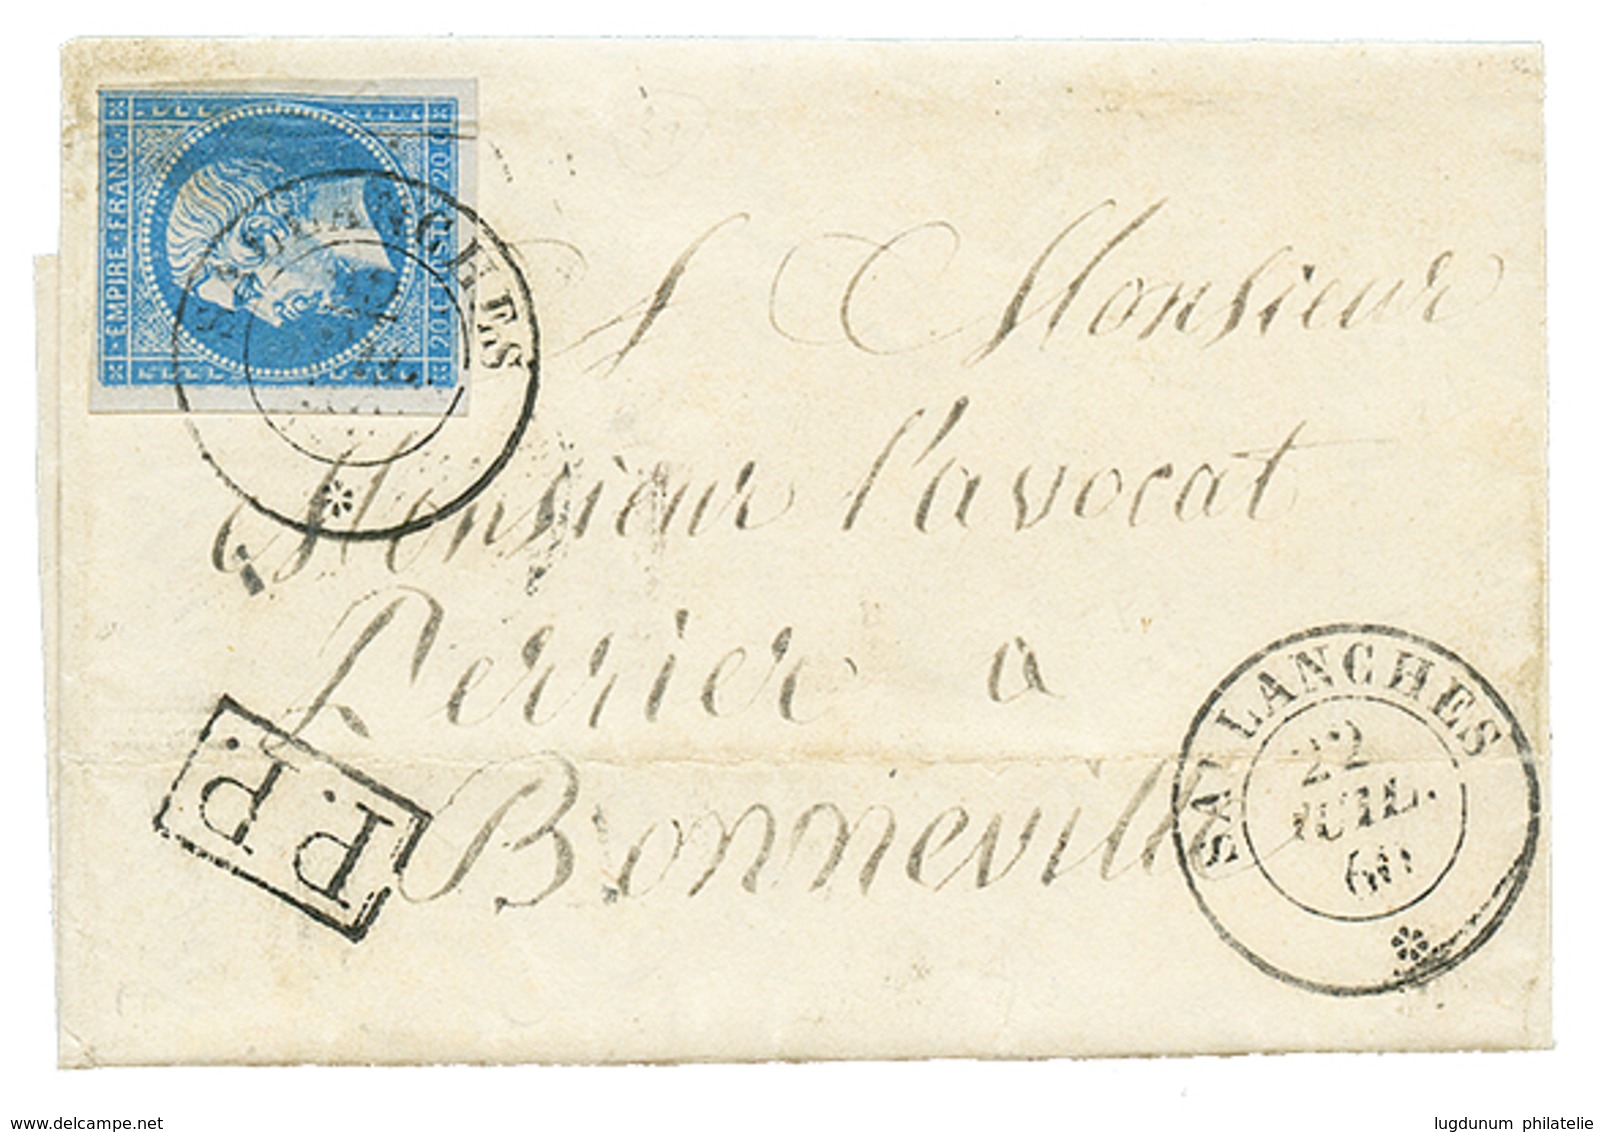 EMPIRE FRANC
20 C. 20 C.
SALLANCHES
A Monsieur
Monsieur l'avocat
Perrier a
Bonneville
P.P.
SALLANCHES
22
JUIL.
60
delcampe.net
lugdunum philatelie